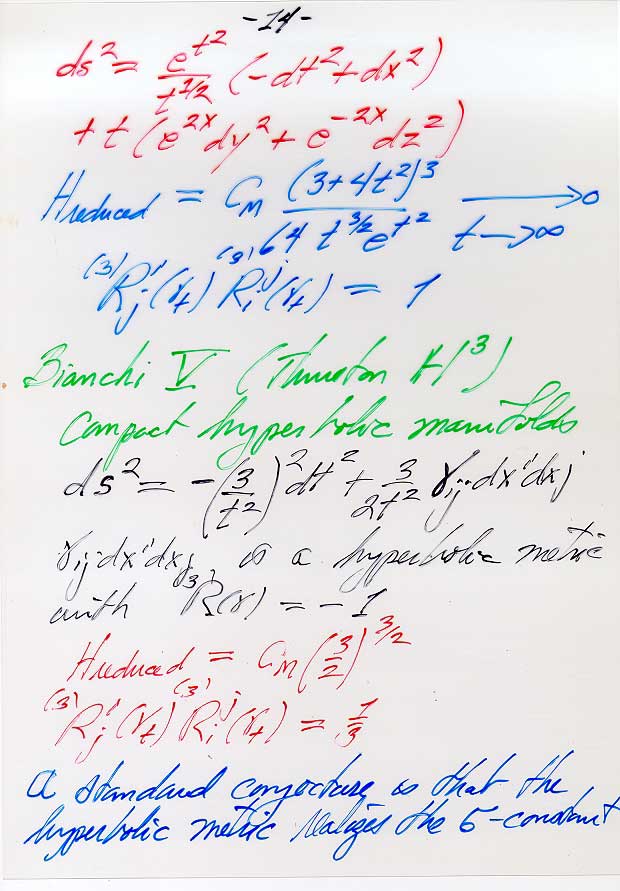 -14-
ds² = e^{t²}/t^{1/2} (-dt² + dx²)
+ t (e^{2x} dy² + e^{-2x} dz²)
Hreduced = C_M (3+4t²)³ / 64 t^{3/2} e^{t²} → 0
t → ∞
⁽³⁾R_j^i(γ_t) ⁽³⁾R_i^j(γ_t) = 1
Bianchi V (Thurston H³)
Compact hyperbolic manifolds
ds² = -(3/t²)² dt² + 3/2t² γij dx^i dx^j
γij dx^i dx^j is a hyperbolic metric
with ⁽³⁾R(γ) = -1
Hreduced = C_M (3/2)^{3/2}
⁽³⁾R_j^i(γ_t) ⁽³⁾R_i^j(γ_t) = 1/3
A standard conjecture is that the
hyperbolic metric realizes the σ-constant